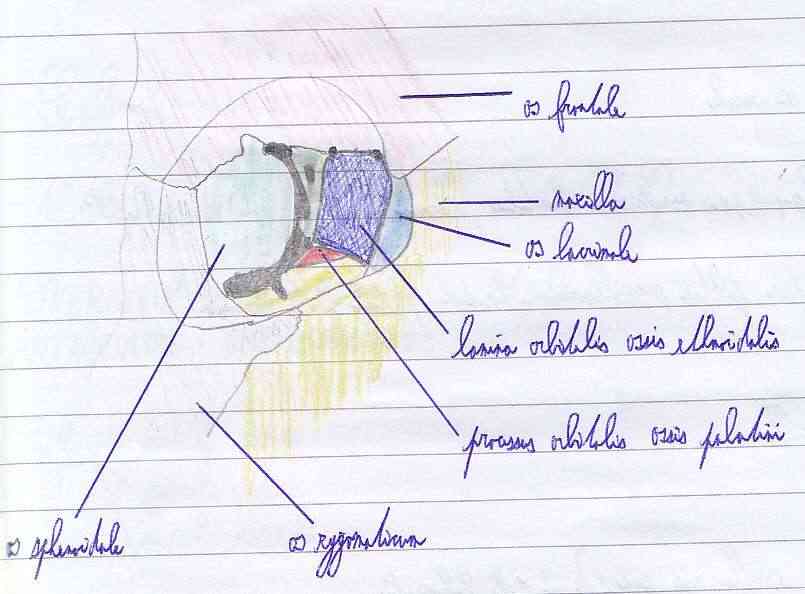 os frontale
maxilla
os lacrimale
lamina orbitalis ossis ethmoidalis
processus orbitalis ossis palatini
os sphenoidale
os zygomaticum